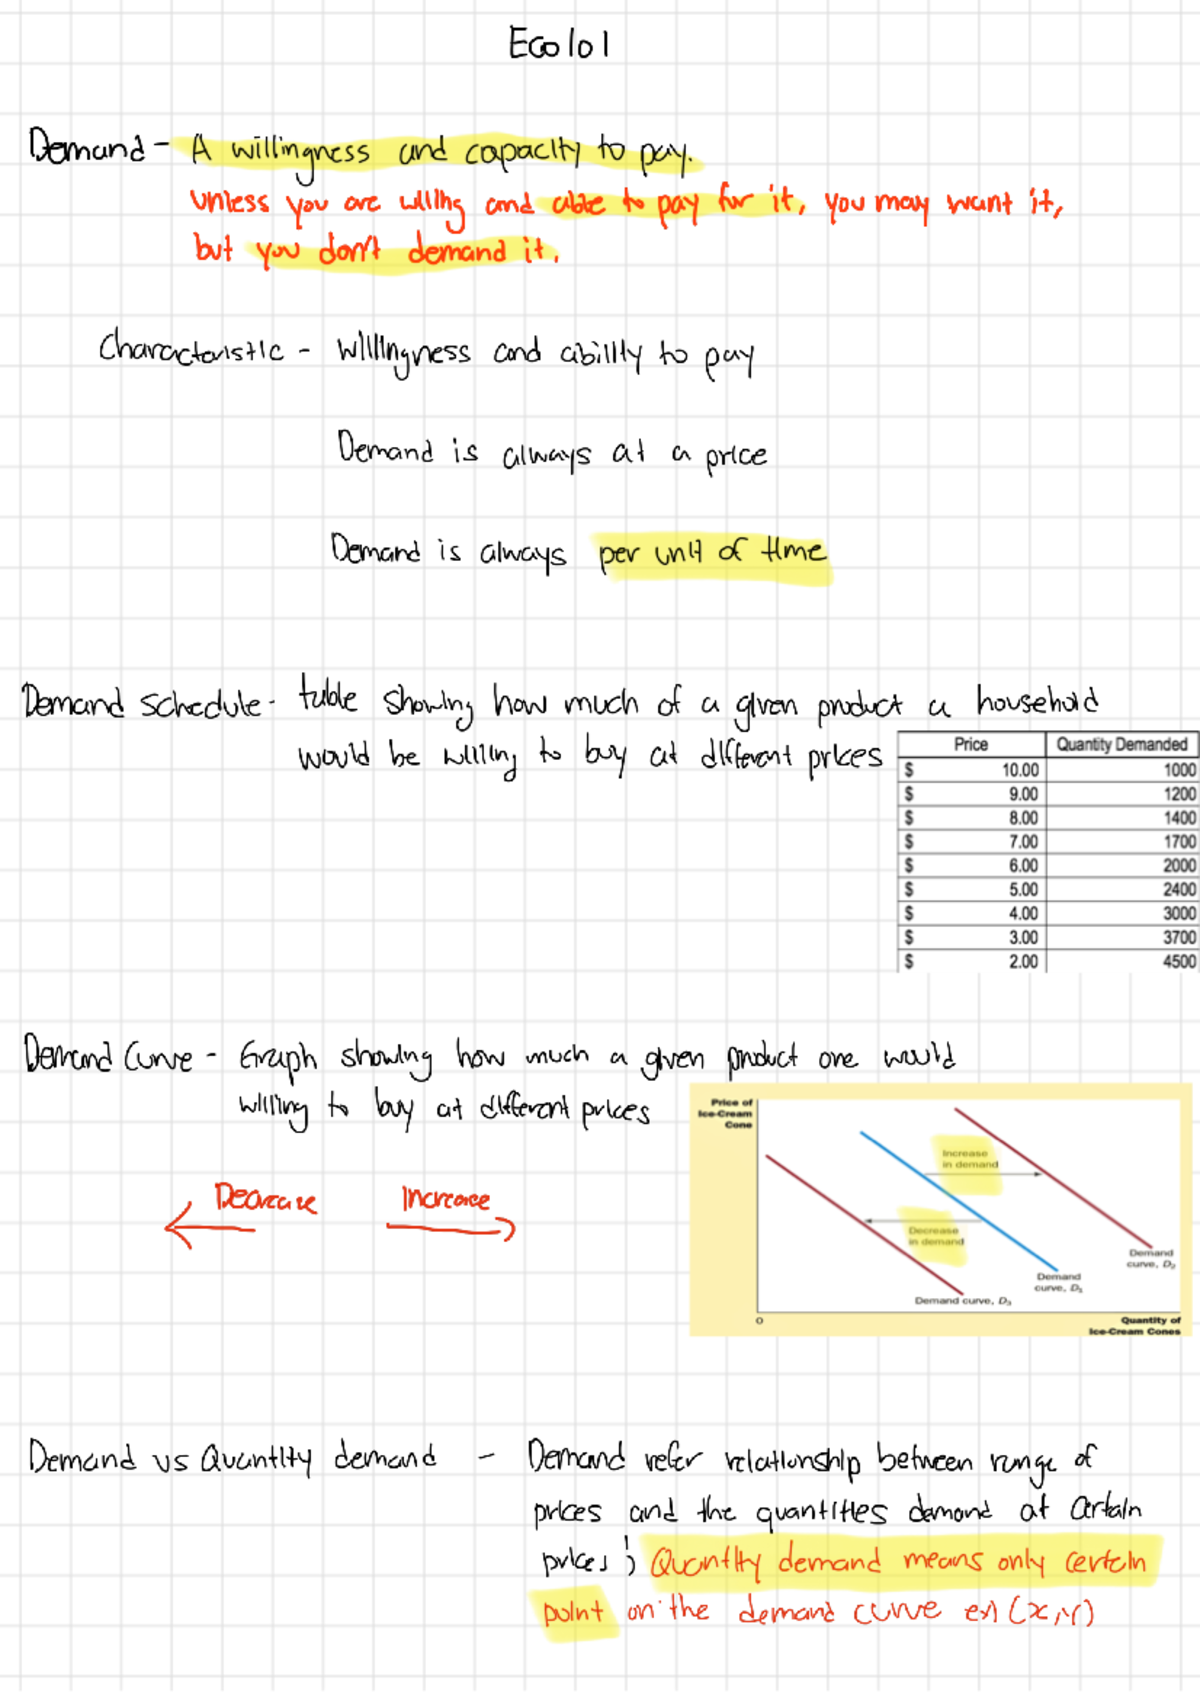 Eco101
Demand - A willingness and capacity to pay.
unless you are willing and able to pay for it, you may want it,
but you don't demand it.
Characteristic - willingness and ability to pay
Demand is always at a price
Demand is always per unit of time
Demand schedule - table showing how much of a given product a household
would be willing to buy at different prices
Price Quantity Demanded
$ 10.00 1000
$ 9.00 1200
$ 8.00 1400
$ 7.00 1700
$ 6.00 2000
$ 5.00 2400
$ 4.00 3000
$ 3.00 3700
$ 2.00 4500
Demand Curve - Graph showing how much a given product one would
willing to buy at different prices
Decrease Increase
Price of
Ice-Cream
Cone
Increase
in demand
Decrease
in demand
Demand
curve, D₂
Demand
curve, D₁
Demand curve, D₃
0
Quantity of
Ice-Cream Cones
Demand vs Quantity demand - Demand refer relationship between range of
prices and the quantities demand at certain
prices ; Quantity demand means only certain
point on the demand curve ex) (x,y)